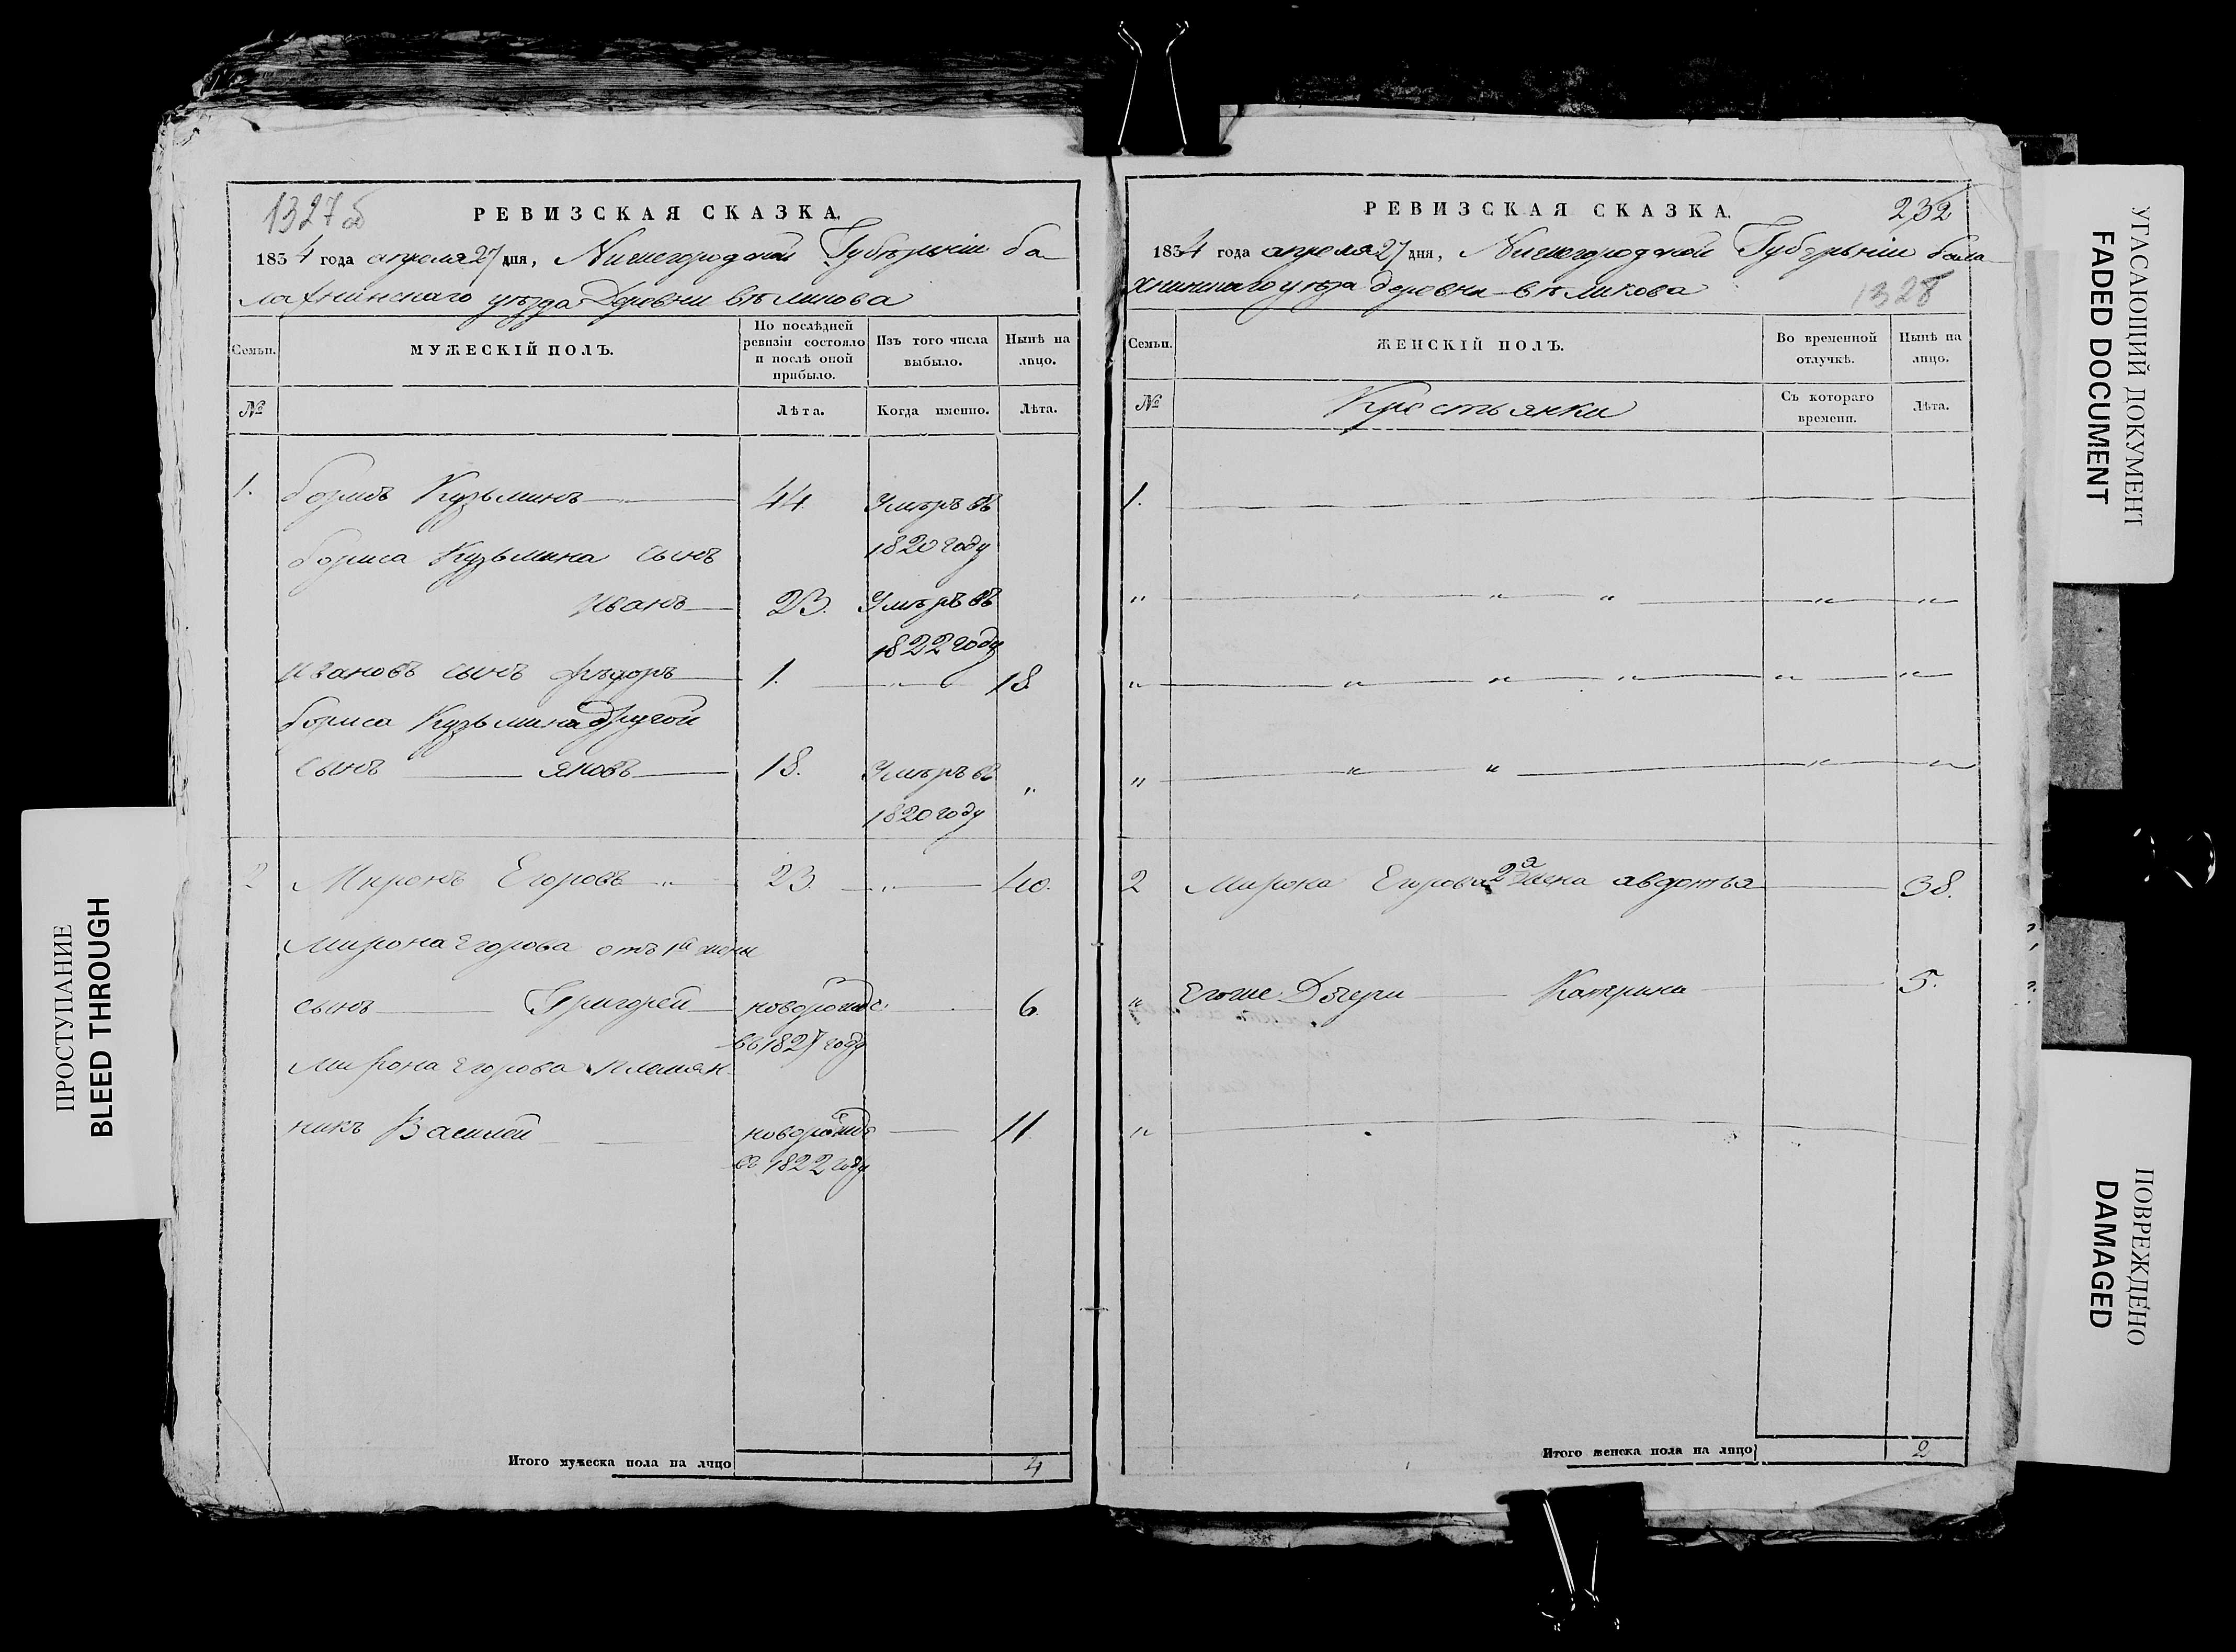 1327об
РЕВИЗСКАЯ СКАЗКА.
1834 года апреля 27 дня, Нижегородской Губѣрніи ба-
лахнинскаго уѣзда Деревни Вѣликова
Семьи.
МУЖЕСКІЙ ПОЛЪ.
По послѣдней
ревизіи состояло
и послѣ оной
прибыло.
Изъ того числа
выбыло.
Нынѣ на
лицо.
№
Лѣта.
Когда именно.
Лѣта.
1. Борисъ Кузьминъ 44. Умѣръ въ
1820 году
Бориса Кузьмина сынъ
Иванъ 23. Умѣръ въ
1822 году
Ивановъ сынъ Фѣдоръ 1. " 18.
Бориса Кузьмина другой
сынъ Яковъ 18. Умѣръ въ "
1820 году
2 Миронъ Егоровъ " 23. " 40.
Мирона Егорова отъ 1й жены
сынъ Григорей новорожде 6.
въ 1827 году
Мирона Егорова племян
никъ Василей новорожде 11.
въ 1822 году
Итого мужеска пола на лицо 4
РЕВИЗСКАЯ СКАЗКА.
232
1834 года апреля 27 дня, Нижегородской Губѣрніи бала
хнинскаго уѣзда деревни Вѣликова
1328
Семьи.
ЖЕНСКІЙ ПОЛЪ.
Во временной
отлучкѣ.
Нынѣ на
лицо.
№
Крестьянки
Съ котораго
времени.
Лѣта.
1.
" " " " " "
" " " " " "
" " " " "
2 Мирона Егорова 2а жена авдотья 38.
" Егоже Дочери Катерина 5.
"
Итого женска пола на лицо 2
ПРОСТУПАНИЕ
BLEED THROUGH
УГАСАЮЩИЙ ДОКУМЕНТ
FADED DOCUMENT
ПОВРЕЖДЕНО
DAMAGED